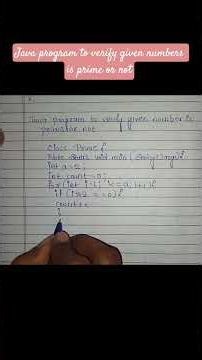 Java program to verify given numbers
is prime or not
Java program to verify given number is
prime or not
class Prime {
static void main (String[] args) {
int a=5;
int count=0;
for (int i=1; i<=a; i++) {
if (i%2 ==0) {
count++
}